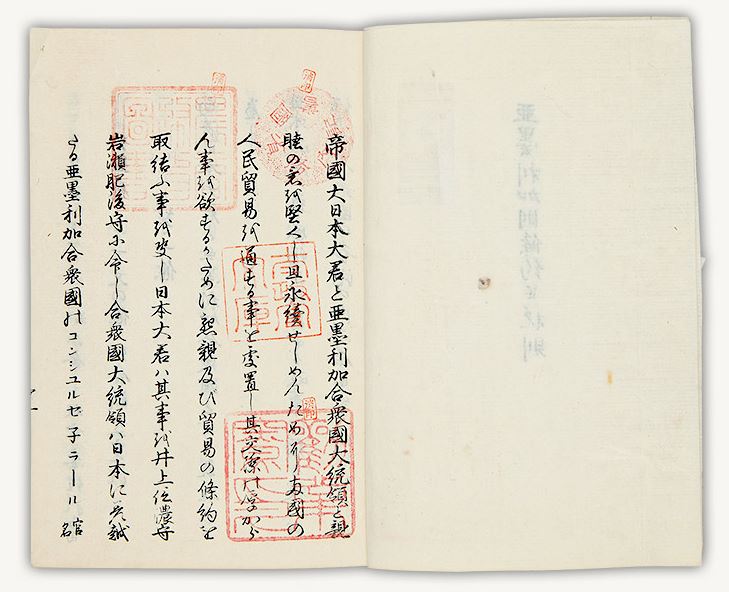 帝國大日本大君と亜墨利加合衆國大統領と親
睦の意を堅くし且永續せしめんため両國の
人民貿易を通する事を處置し其交際の厚から
ん事を欲するかために懇親及び貿易の條約を
取結ふ事を決し日本大君ハ其事を井上信濃守
岩瀬肥後守に命し合衆國大統領ハ日本に差越
たる亜墨利加合衆國のコンシユルセ子ラール 官名